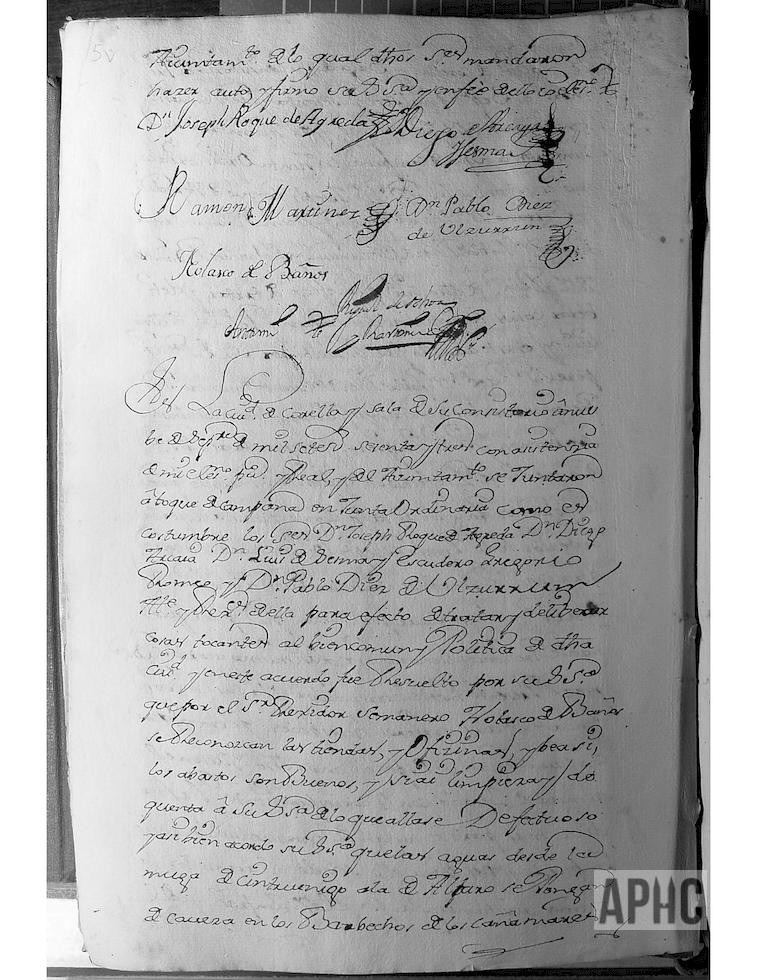 5v
Aiuntamto. de lo qual dhos Sres mandaron
hazer auto, y firmo su Ssa. y en fee dello yo el essno.
Dn. Joseph Roque de Agreda Dn Diego de Arcaya
Sesma
Ramon Martinez Dn. Pablo Diez
de Ulzurrun
Nolasco de Baños
Antemi
En La ciud. de Corella y sala de su Consistorio a nue
be de de mil setezs. sesenta y tres con asistenzia
de mi el essno. pu. y Real, y del Aiuntamto. se Juntaron
a toque de campana en Junta Ordinaria como es
costumbre los Sres Dn. Joseph Roque de Agreda Dn. Diego
Arcaia Dn. Luis de Sesma y Escudero Gregorio
y Dn. Pablo Diez de Ulzurrun
Alce. y Rexres. della para efecto de tratar y deliberar
cosas tocantes al bien comun y Politica de dha
ciud. y en este acuerdo fue Resuelto por su Ssa.
que por el Sr. Rexidor Semanero Nolasco de Baños
se Reconozcan las tiendas, y Oficinas, y bea si,
los abastos son Buenos, y si ai limpieza y de
quenta a su Ssa. de lo que allase Defectuoso
y asi bien acordo su Ssa. que las aguas desde la
muga de Cintruenigo a la de Alfaro se Pongan
de caveza en los Barbechos de los cañamares
APHC